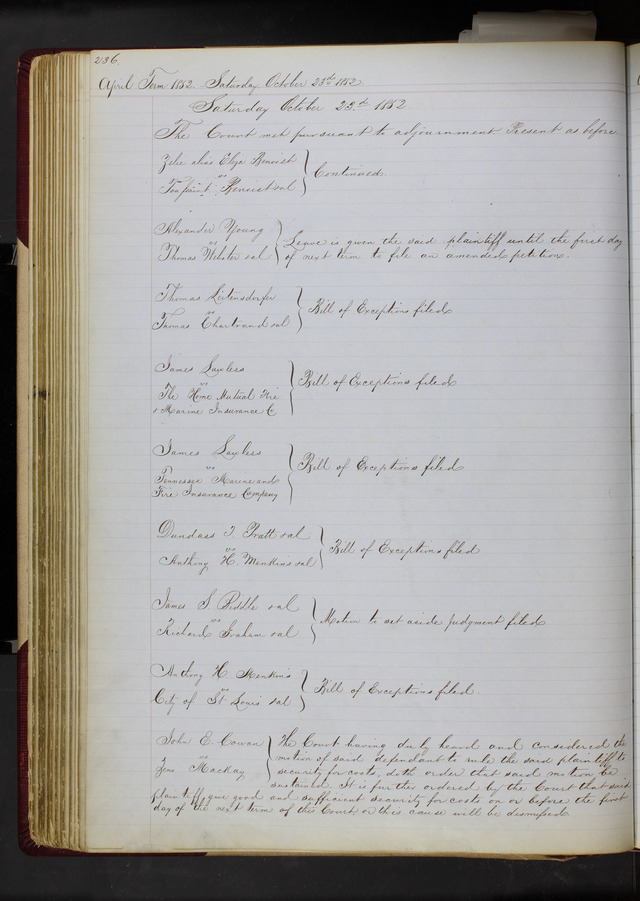 236.
April Term 1852. Saturday October 23d. 1852
Saturday October 23d. 1852
The Court met pursuant to adjournment Present as before
Zelie alias Eliza Benoist
vs
Benoist & al
Continued
Alexander Young
vs
Thomas Webster & al
Leave is given the said plaintiff until the first day
of next term to file an amended petition.
Thomas Leitensdorfer
vs
Thomas Chartrand & al
Bill of Exceptions filed
James Lawless
vs
The Home Mutual Fire
& Marine Insurance Co
Bill of Exceptions filed
James Lawless
vs
Tennessee Marine and
Fire Insurance Company
Bill of Exceptions filed
J. Pratt & al
vs
Anthony H. Menkins & al
Bill of Exceptions filed
James S. Biddle & al
vs
Richard Graham & al
Motion to set aside judgment filed
Anthony H. Menkins
vs
City of St Louis & al
Bill of Exceptions filed
John E. Cowan
vs
Zeno Mackay
The Court having duly heard and considered the
motion of said defendant to rule the said plaintiff to
security for costs, doth order that said motion be
sustained. It is further ordered by the Court that said
plaintiff give good and sufficient security for costs on or before the first
day of the next term of this Court or this cause will be dismissed